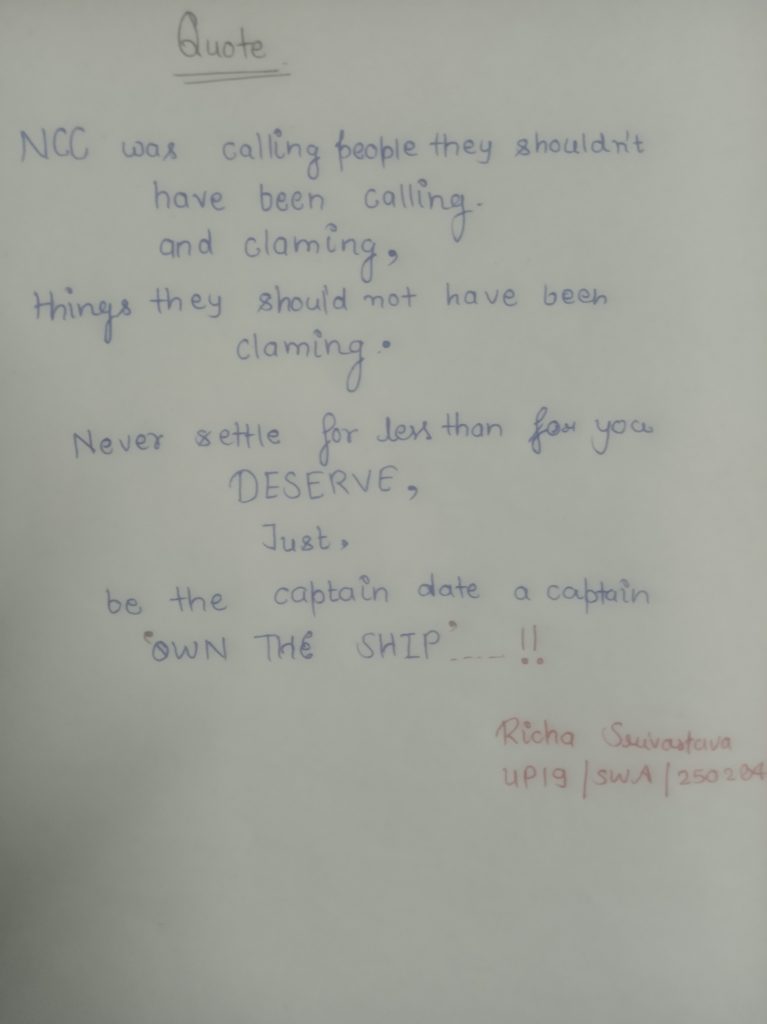 Quote
NCC was calling people they shouldn't
have been calling.
and claming,
things they should not have been
claming.
Never settle for less than for you
DESERVE,
Just,
be the captain date a captain
"OWN THE SHIP" ...... !!
Richa Srivastava
UP19/SWA/250204